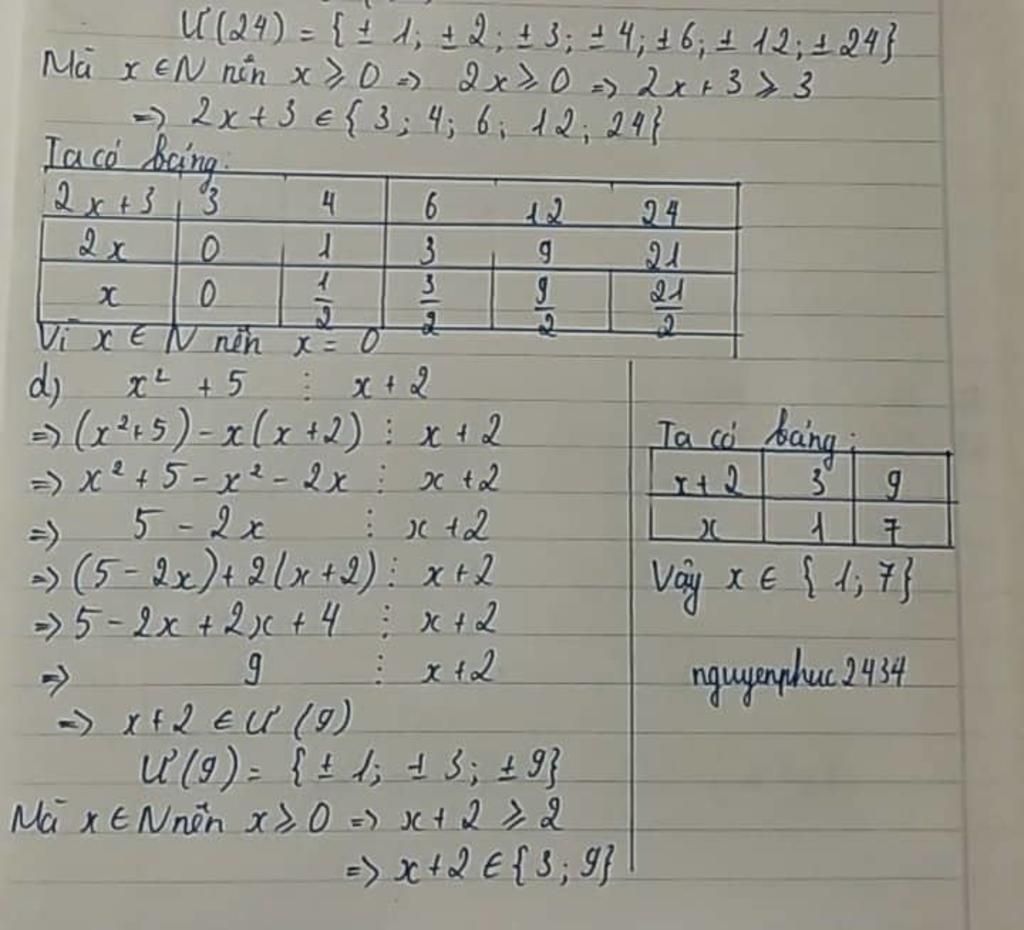 Ư(24) = {± 1; ± 2; ± 3; ± 4; ± 6; ± 12; ± 24}
Mà x ∈ N nên x ⩾ 0 => 2x ⩾ 0 => 2x + 3 ⩾ 3
=> 2x + 3 ∈ {3; 4; 6; 12; 24}
Ta có bảng:
2x + 3 3 4 6 12 24
2x 0 1 3 9 21
x 0 1/2 3/2 9/2 21/2
Vì x ∈ N nên x = 0
d) x² + 5 ⋮ x + 2
=> (x² + 5) - x(x + 2) ⋮ x + 2
=> x² + 5 - x² - 2x ⋮ x + 2
=> 5 - 2x ⋮ x + 2
=> (5 - 2x) + 2(x + 2) ⋮ x + 2
=> 5 - 2x + 2x + 4 ⋮ x + 2
=> 9 ⋮ x + 2
=> x + 2 ∈ Ư(9)
Ư(9) = {± 1; ± 3; ± 9}
Mà x ∈ N nên x ⩾ 0 => x + 2 ⩾ 2
=> x + 2 ∈ {3; 9}
Ta có bảng:
x + 2 3 9
x 1 7
Vậy x ∈ {1; 7}
nguyenphuc2434